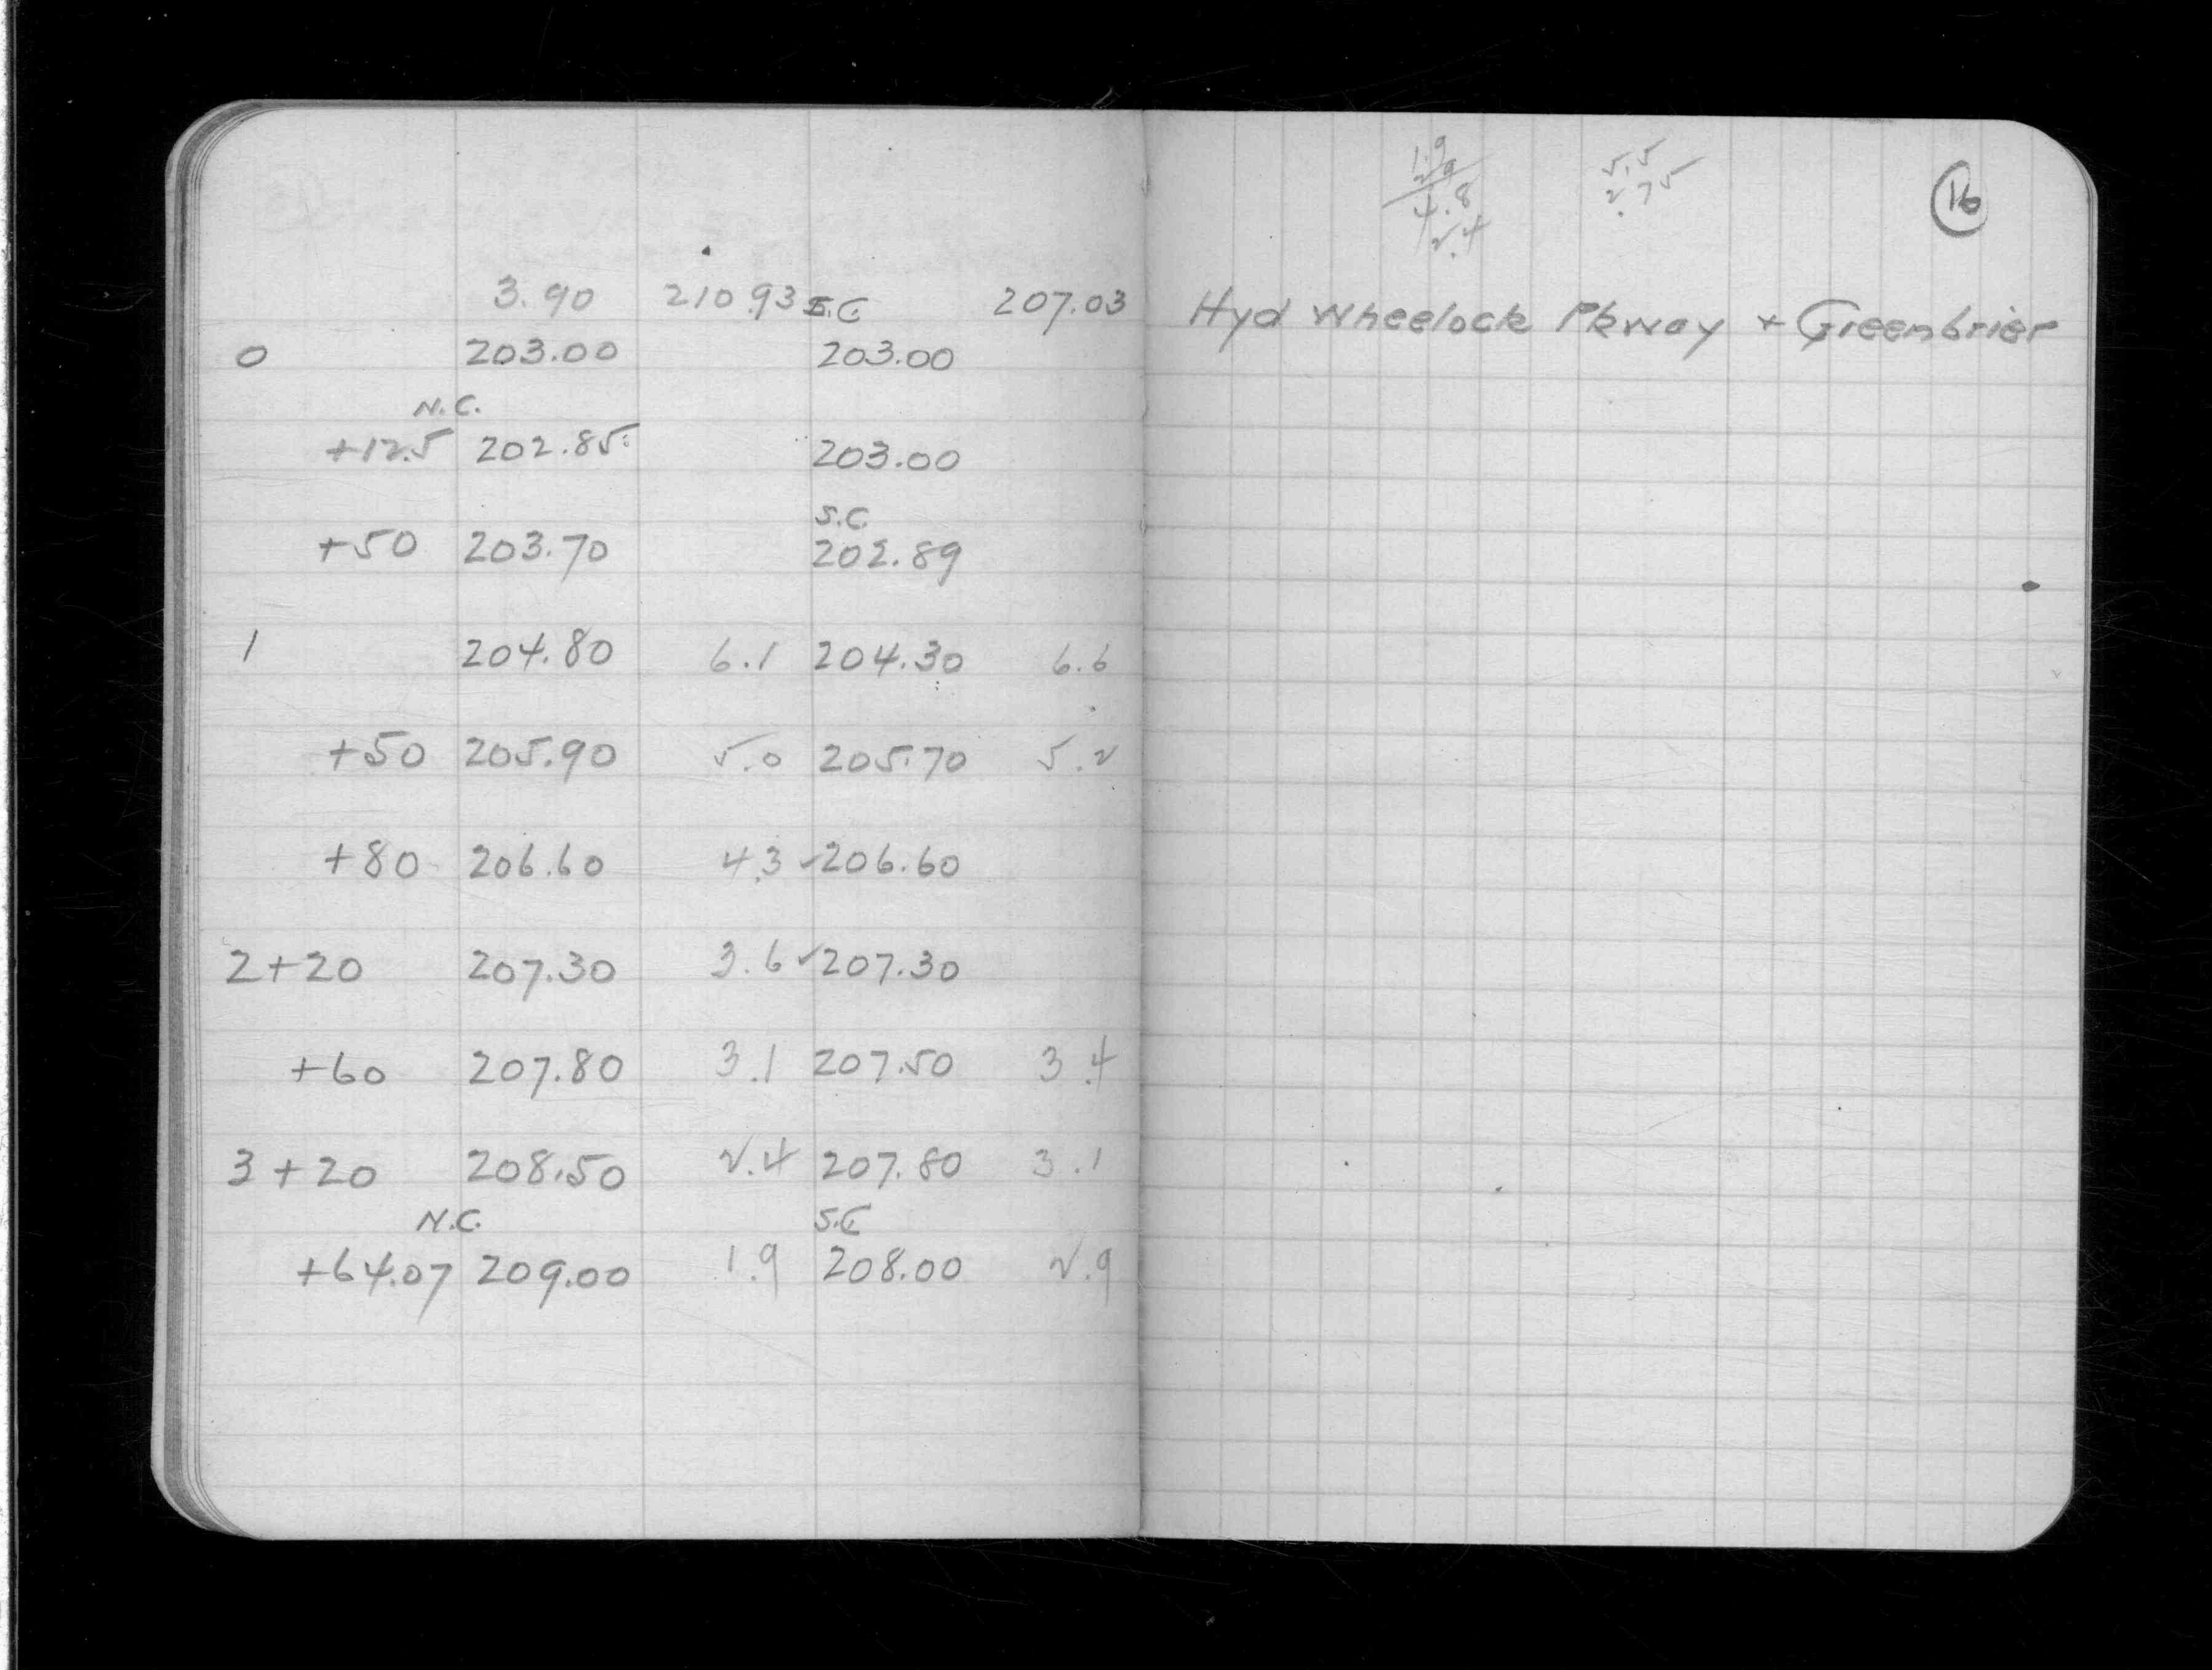 3.90 210.93 S.C. 207.03
0 203.00 203.00
N.C.
+12.5 202.85 203.00
S.C.
+50 203.70 202.89
1 204.80 6.1 204.30 6.6
+50 205.90 5.0 205.70 5.2
+80 206.60 4.3 206.60
2+20 207.30 3.6 207.30
+60 207.80 3.1 207.50 3.4
3+20 208.50 2.4 207.80 3.1
N.C. S.C.
+64.07 209.00 1.9 208.00 2.9
1.9
2.9
4.8
2.4
5.5
2.75
16
Hyd Wheelock Pkway + Greenbrier